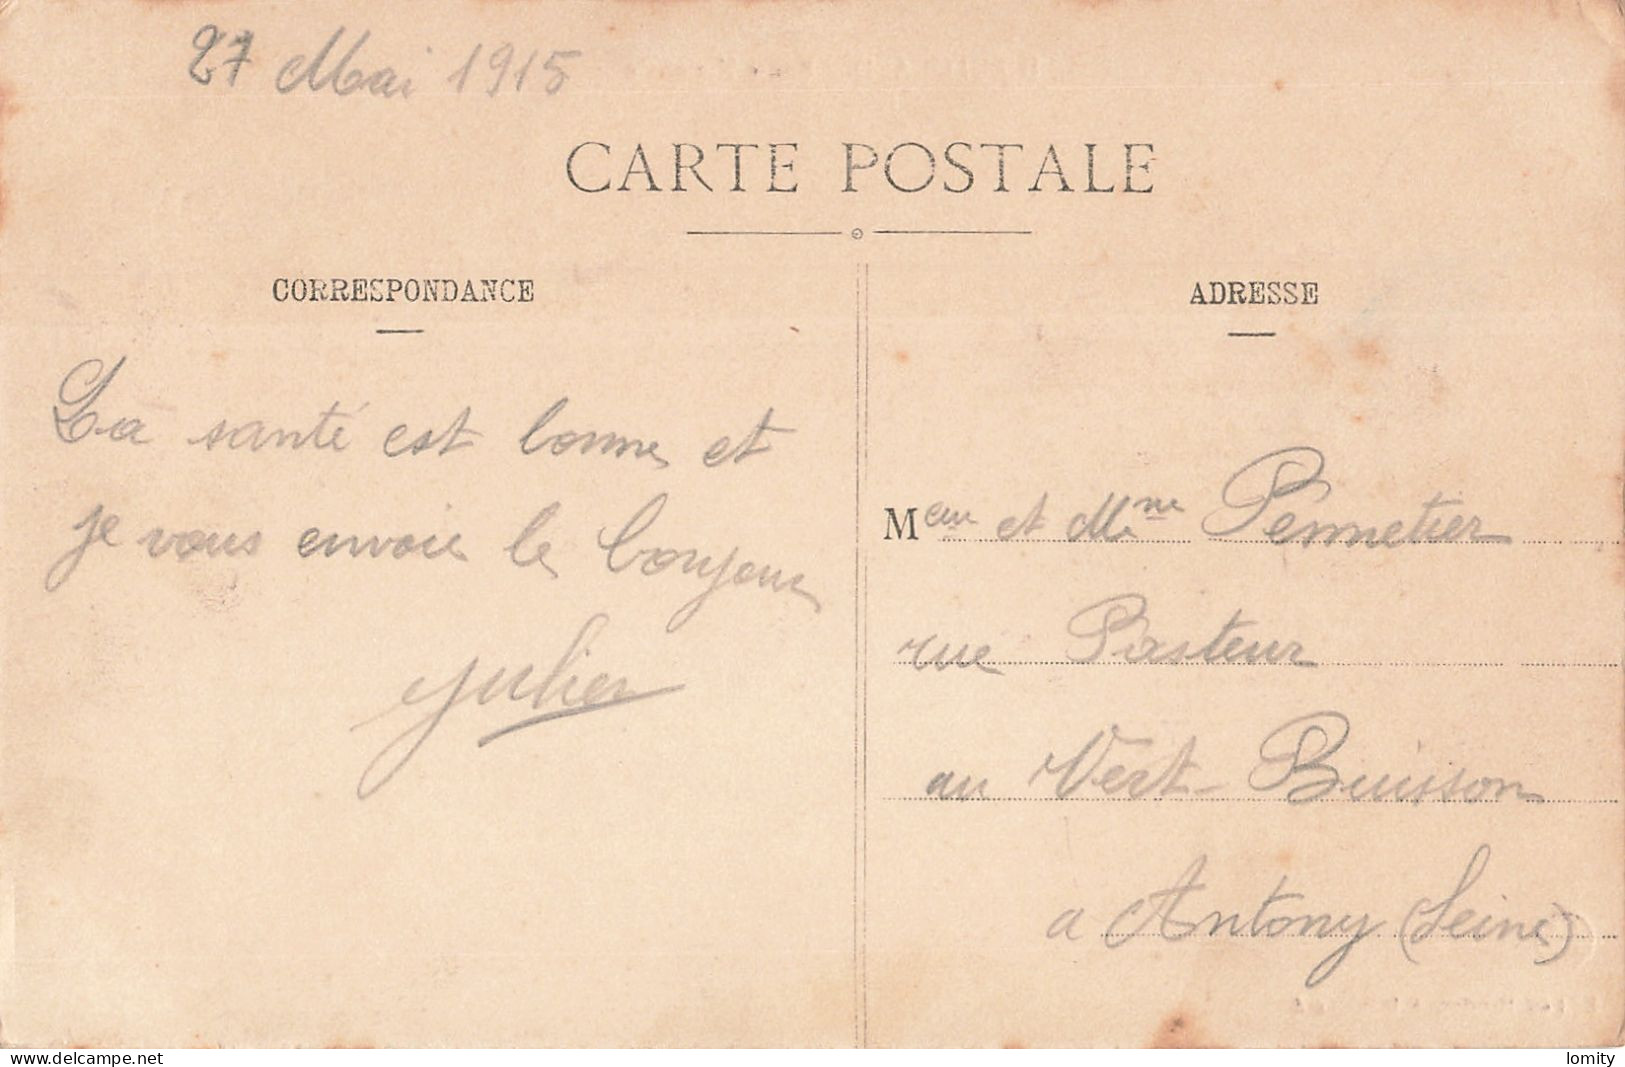 27 Mai 1915
CARTE POSTALE
CORRESPONDANCE
La santé est bonne et
je vous envoie le bonjour
Julien
ADRESSE
Meur et Mme Pennetier
rue Pasteur
au Vert-Buisson
a Antony (Seine)
www.delcampe.net
lomity